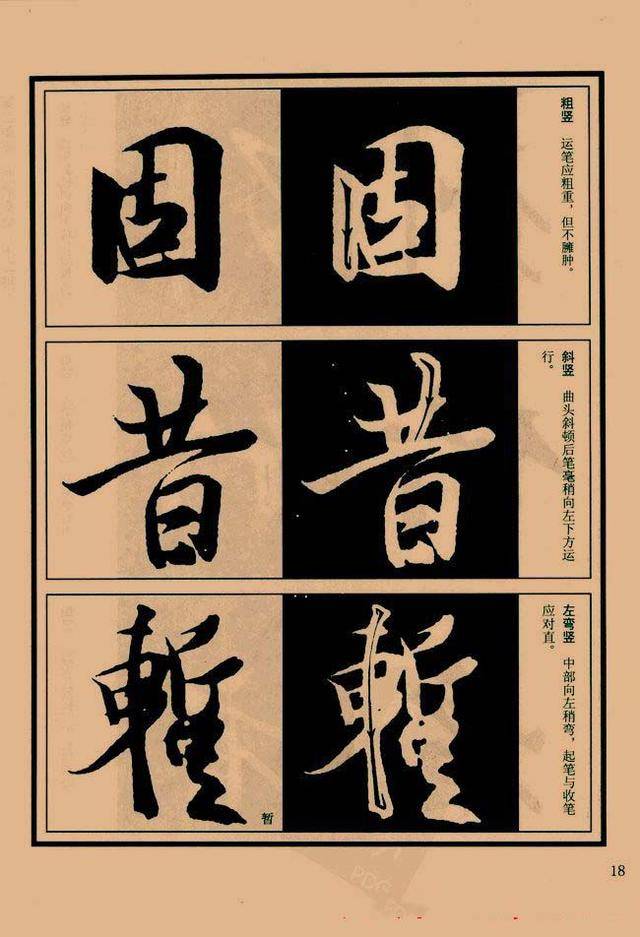 粗竖 运笔应粗重，但不臃肿。
固 固
斜竖 曲头斜顿后笔毫稍向左下方运
行。
昔 昔
左弯竖 中部向左稍弯，起笔与收笔
应对直。
暫 暫
暂
18